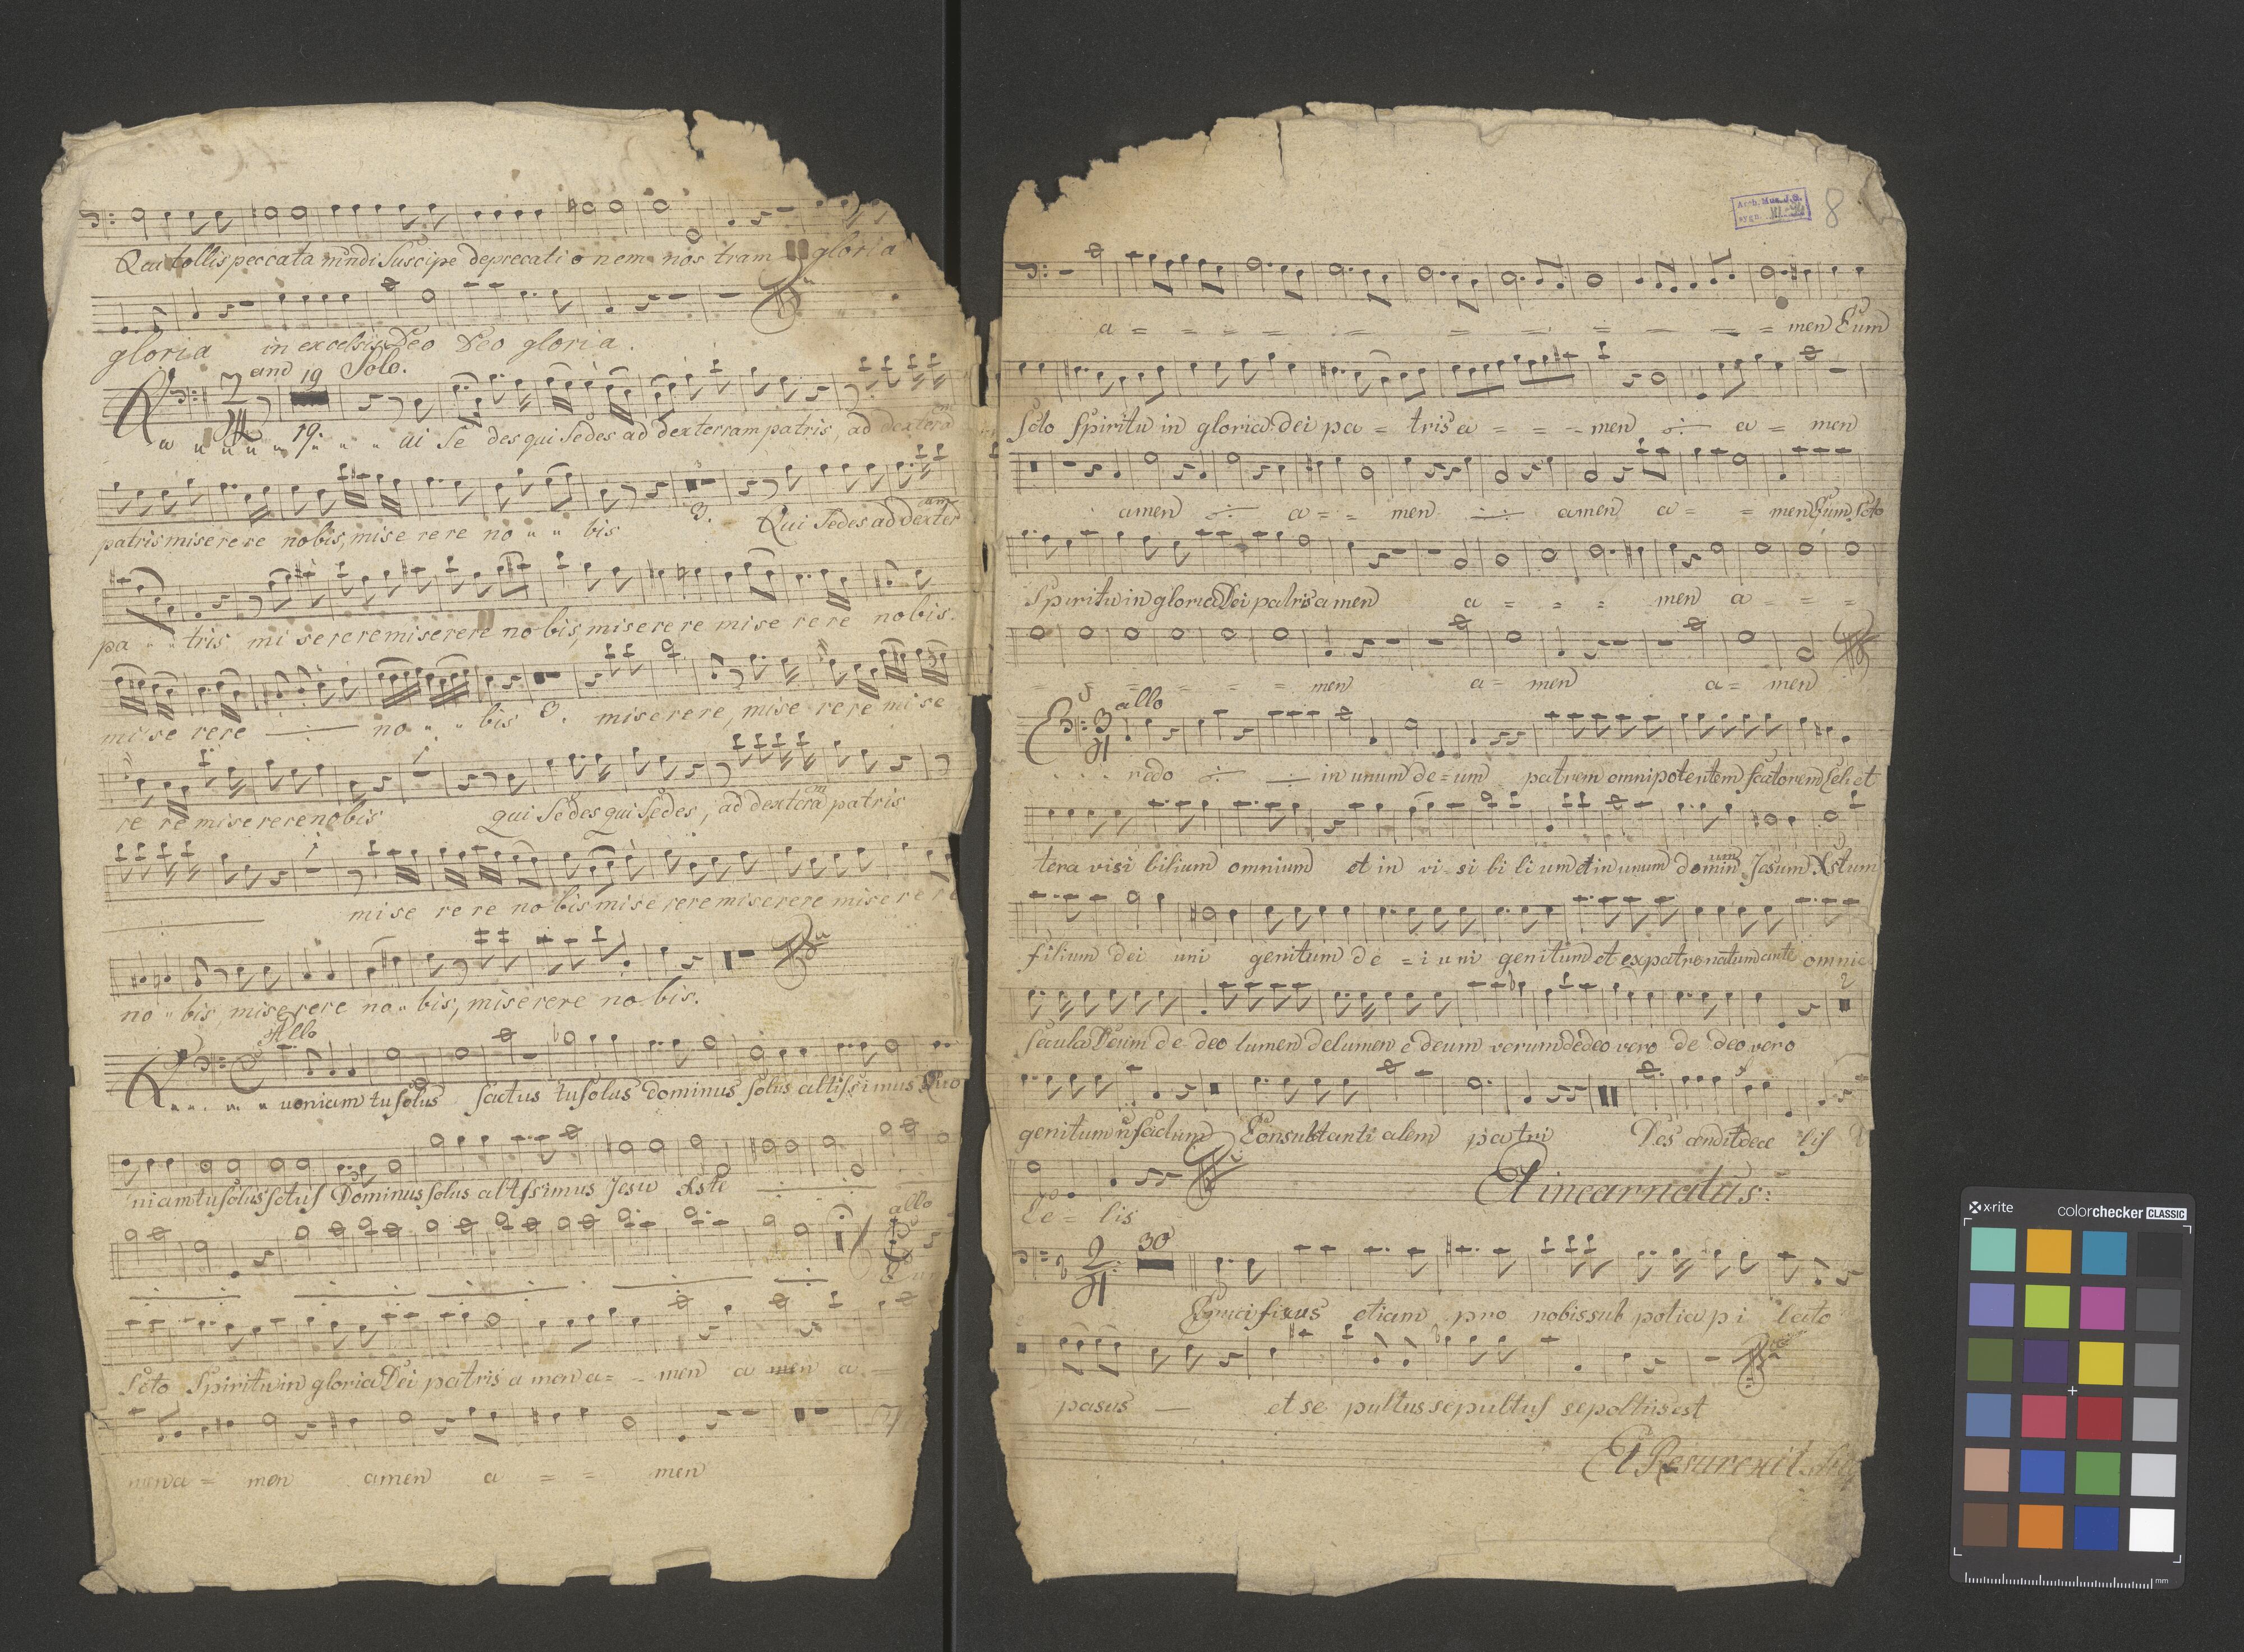 Qui tollis peccata mundi Suscipe deprecati o nem nos tram gloria
gloria in excelsis Deo Deo gloria.
and 19 Solo.
19. ui Se des qui Sedes ad dexterram patris, ad dexteram
patris miserere nobis, mise re re no bis 3. Qui Sedes ad dexteram
pa tris mi se re re miserere no bis, mise re re mise re re nobis.
mi se re re no bis 3. mise re re, mise re re mi se
re re mise re re nobis qui Sedes qui Sedes, ad dexteram patris
mi se re re no bis mise rere miserere mise re re
no bis, miserere no bis, mise rere no bis.
Allo
Q uoniam tu Solus Sactus tu Solus Dominus Solus altissimus Quo
niam tu Solus Sctus Dominus Solus altissimus Jesu Xste
allo
Cum
Scto Spiritu in gloria Dei patris a men a = men a men a
men a = men amen a = = men
Arch. Mus. J.G.
sygn.
8
a = = = = = = = = = = men Cum
Scto Spiritu in gloria dei pa = tris a = = men a = men
amen a = = men amen a = = men Cum Scto
Spiritu in gloria Dei patris a men a = = = men a = = =
= = = = = men a = men a = men
allo
C redo in unum de = um patrem omnipotentem factorem Celi et
tera visi bilium omnium et in vi si bi li um et in unum dominum Jesum Xstum
filium dei uni genitum de = i uni genitum et ex patre natum ante omnia
2
Secula Deum de deo lumen de lumen e deum verum de deo vero de deo vero
genitum n factum Consubstanti alem patri Des cendit de ce lis
Ce = lis
Et incarnatus:
30
Crucifixus etiam pro nobis sub potia pi lato
pasus et se pultus sepultus sepoltus est
Et Resurexit